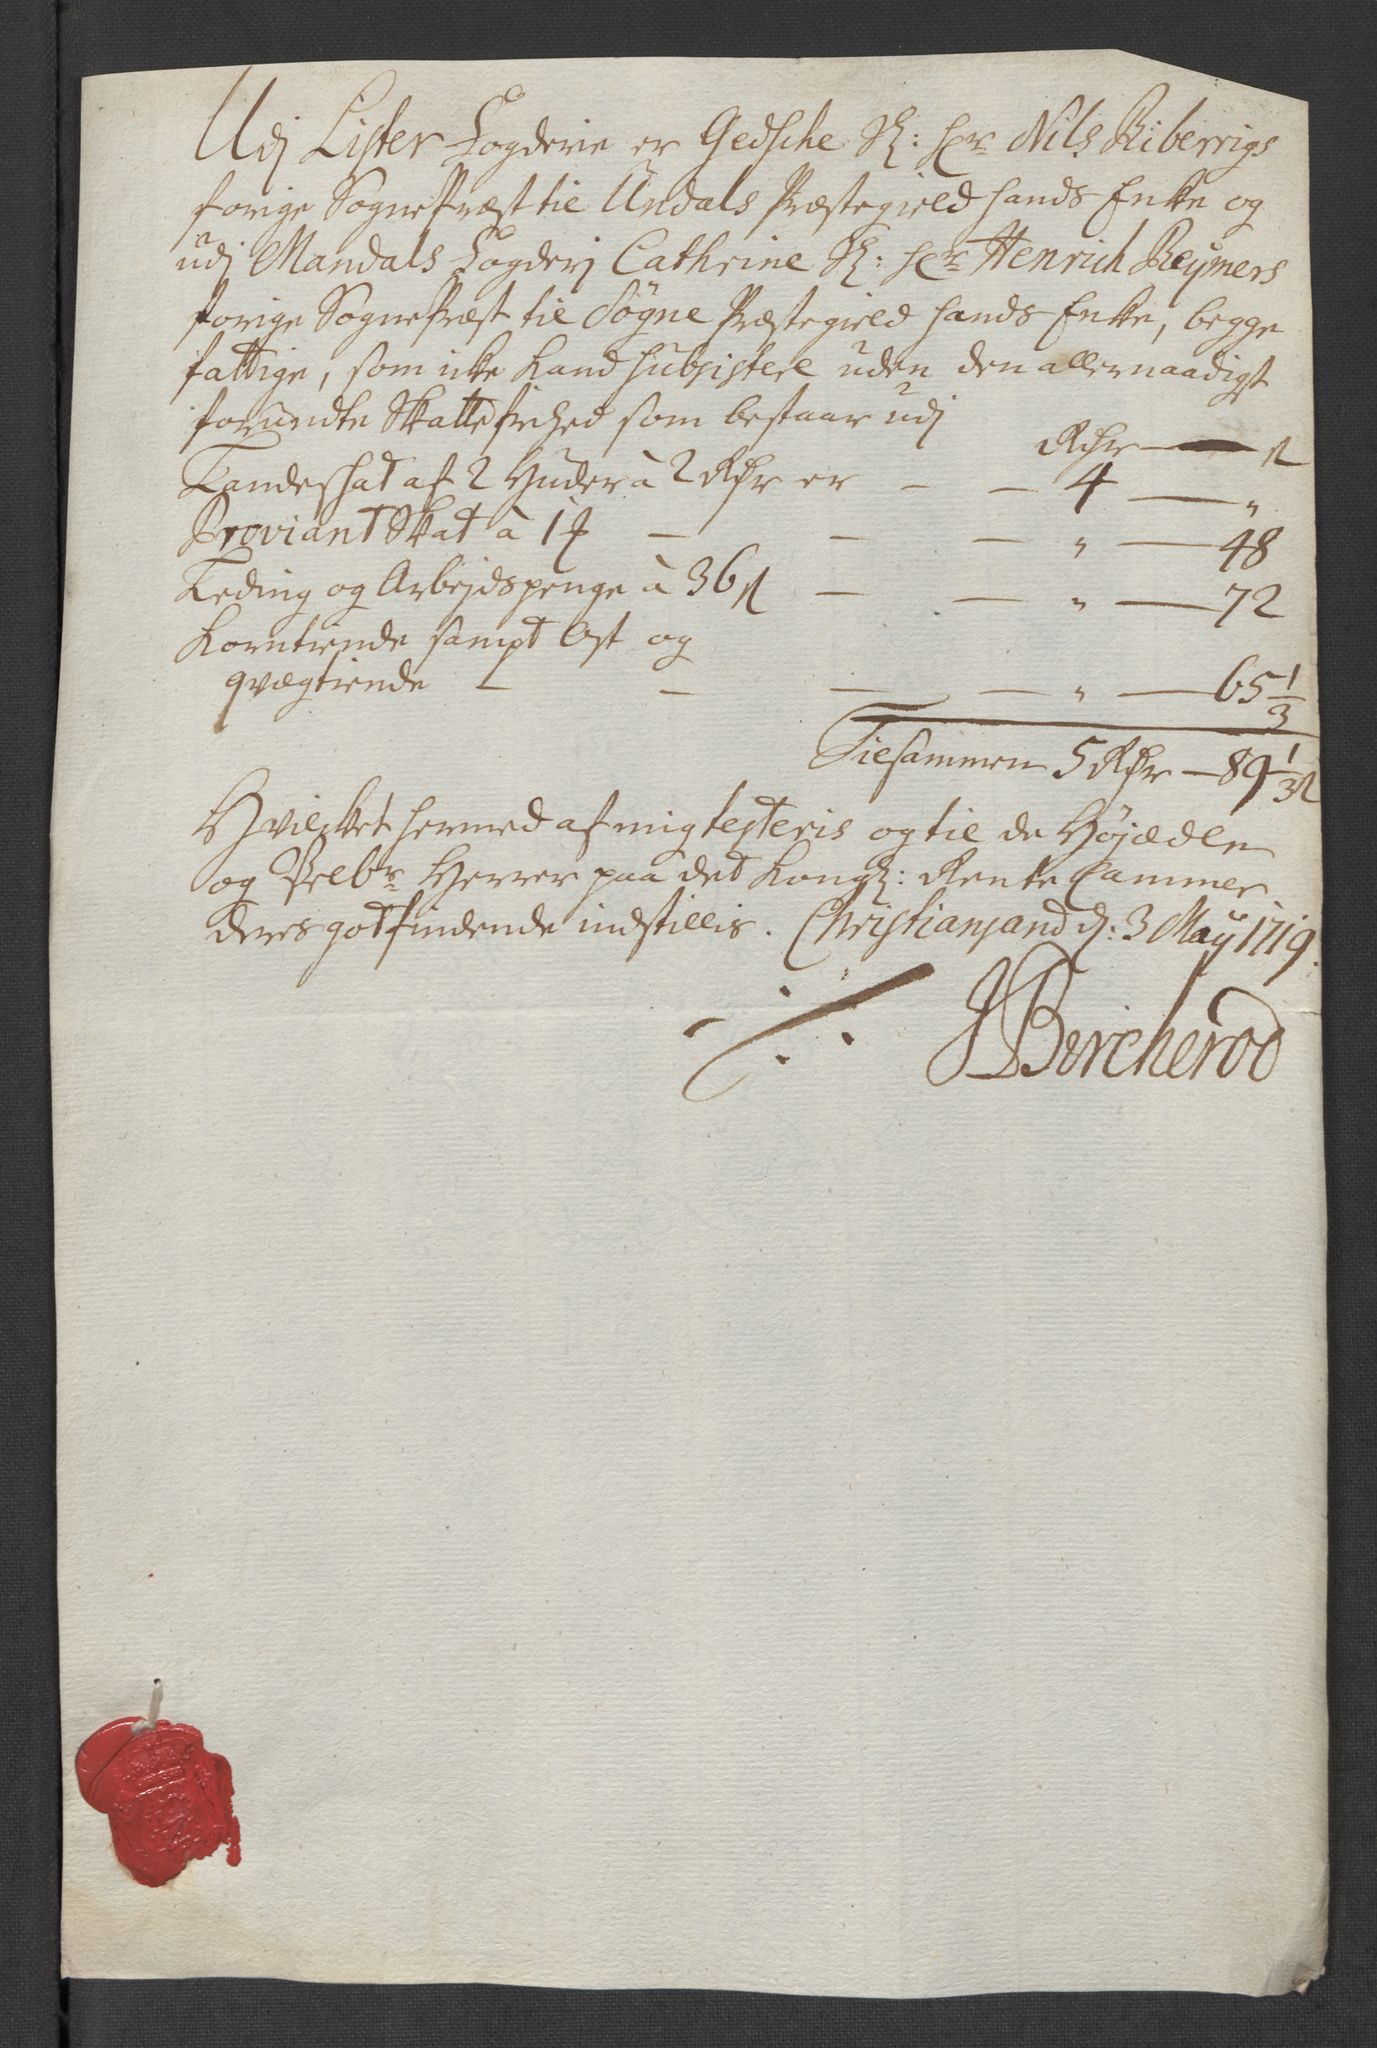 Udj Lister Fogderie er Gedsche Sl: Hr Nils Riberrigs
forige SognePræst til Undals Præstegield hands Enke og
udj Mandals Fogderj Cathrine Sl: Hr Henrich Reÿmers
forige SognePræst til Søgne Præstegield hands Enke, begge
fattige, som icke kand subsistere uden den allernaadigst
forundte Skattefrihed som bestaar udj
Rdr — ß
Landeskat af 2 Huder à 2 Rdr er — — 4 — "
Proviant Skat à 1 — — — " — 48
Leding og Arbejdspenge à 36 ß — — " — 72
Korntiende sampt Ost og
qvægtiende — — — — " — 65 1/3
Tilsammen 5 Rdr — 89 1/3 ß
Hvilcket hermed af mig testeris og til de Høyædle
og Velbr Herrer paa det Kongl: Rente Cammer
deres godtfindende indstillis. Christiansand d: 3 Maÿ 1719.
JBircherod